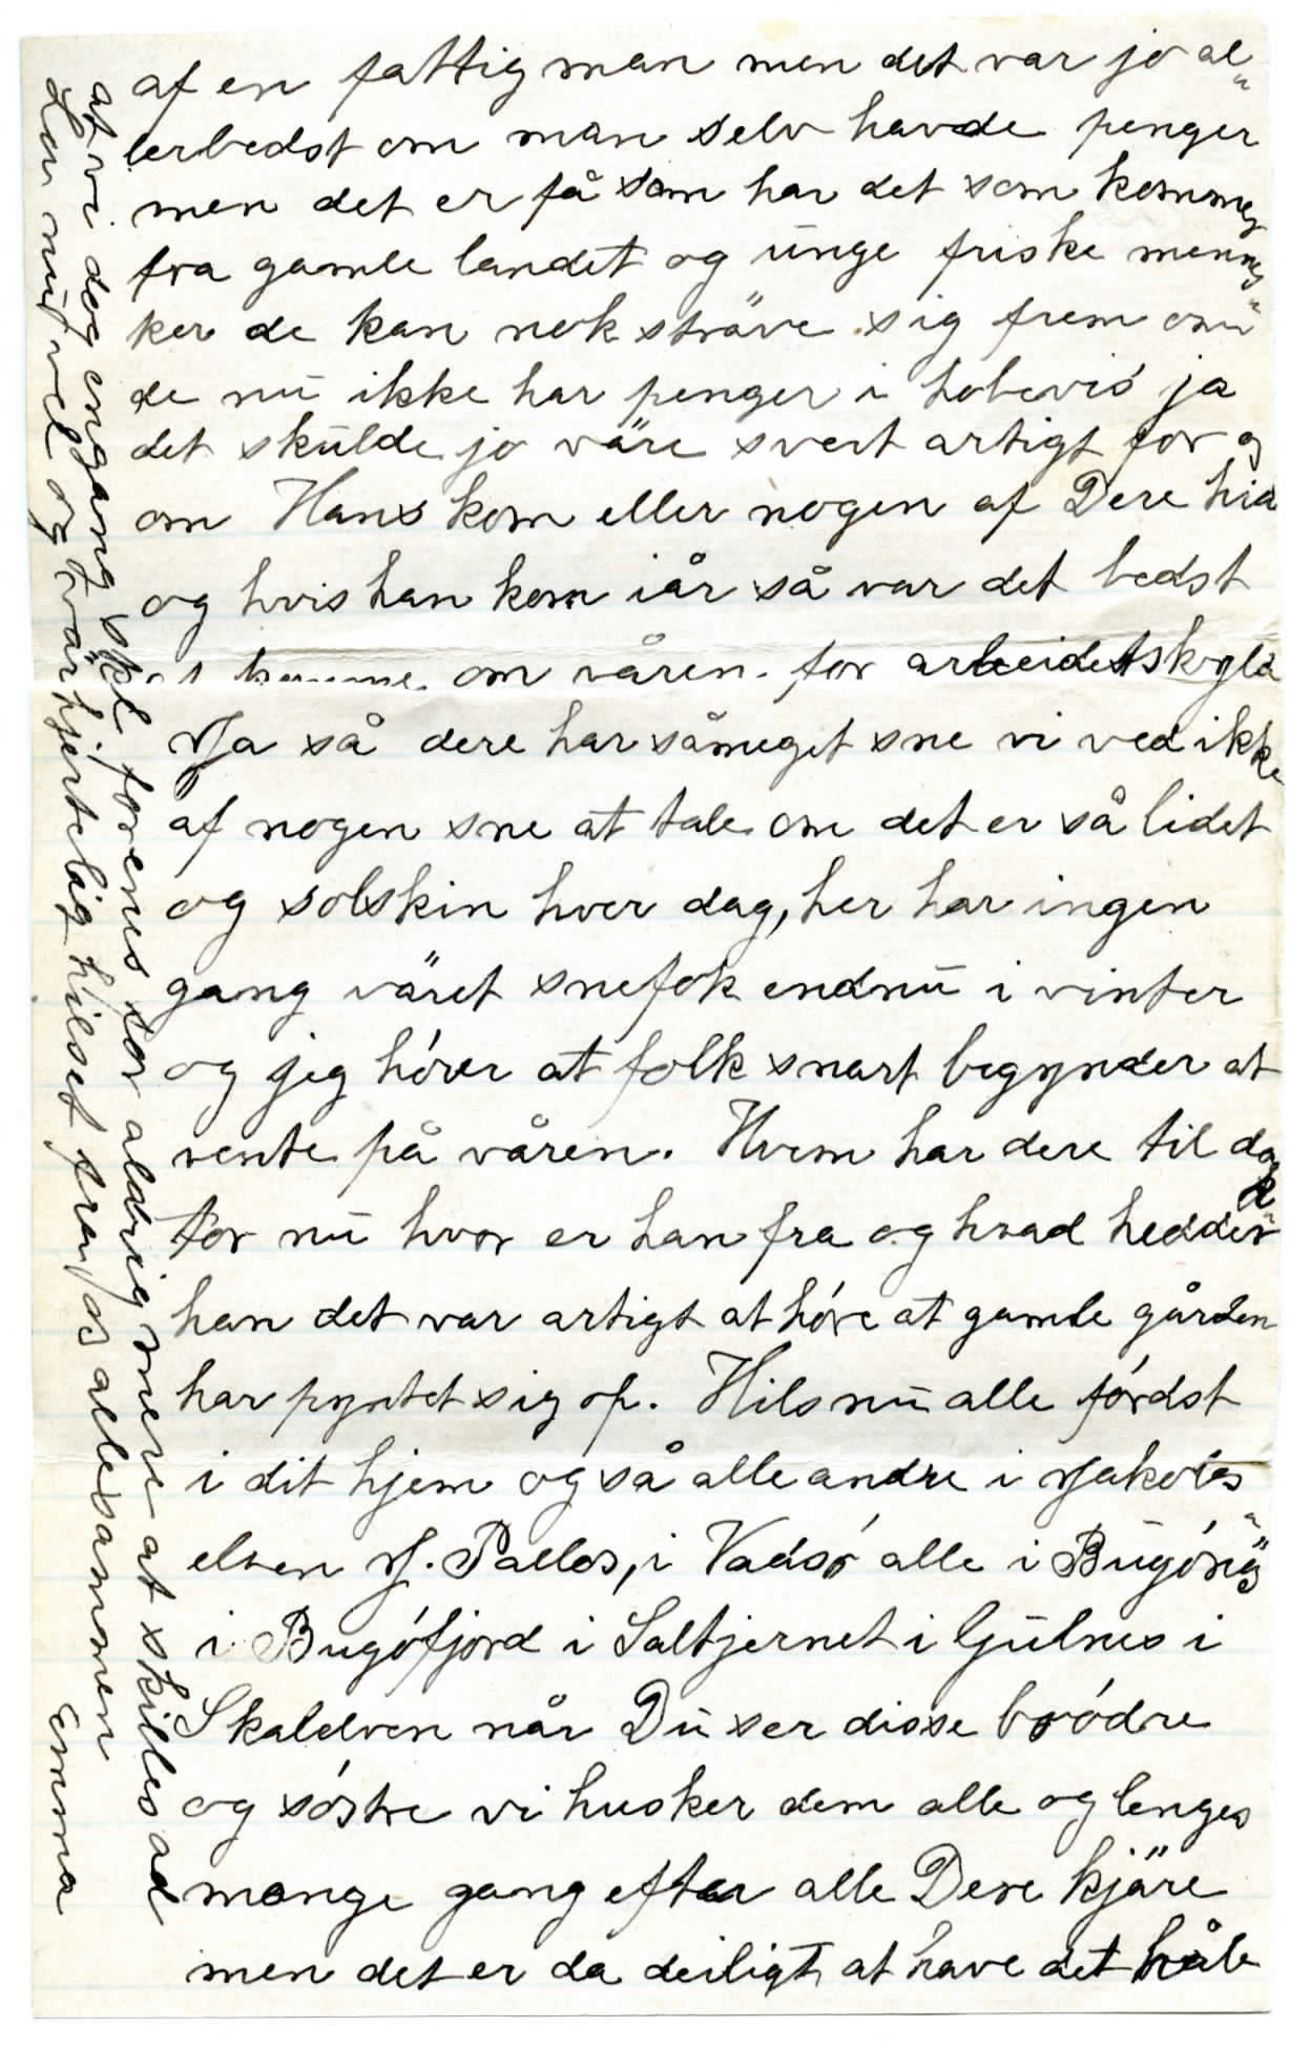 af en fattig man men det var jo al"
lerbedst om man selv havde penger
men det er få som har det som kommer
fra gamle landet og unge friske mennes"
ker de kan nok sträve sig frem om
de nu ikke har penger i hobevis ja
det skulde jo väre svert artigt for os
om Hans kom eller nogen af Dere hid
og hvis han kom iår så var det bedst
at komme om våren. for arbeidetskyld
Ja så dere har såmeget sne vi ved ikke
af nogen sne at tale om det er så lidet
og solskin hver dag, her har ingen
gang väret snefok endnu i vinter
og jeg hórer at folk snart begynder at
vente på våren. Hvem har dere til dok
tor nu hvor er han fra og hvad hedder
han det var artigt at hóre at gamle gården
har pyntet sig op. Hils nu alle fórdst
i dit hjem og så alle andre i Jakobs"
elven J. Palles, i Vadsó alle i Bugónäs
i Bugófjord i Saltjernet i Gulnes i
Skalelven når Du ser disse bródre
og sóstre vi husker dem alle og lenges
mange gang efter alle Dere kjäre
men det er da deiligt at have det håb
at vi dog engang skal forenes for aldrig mere at skilles ad
Lev nu vel og vär hjertelig hilset fra os allesammen
Emma